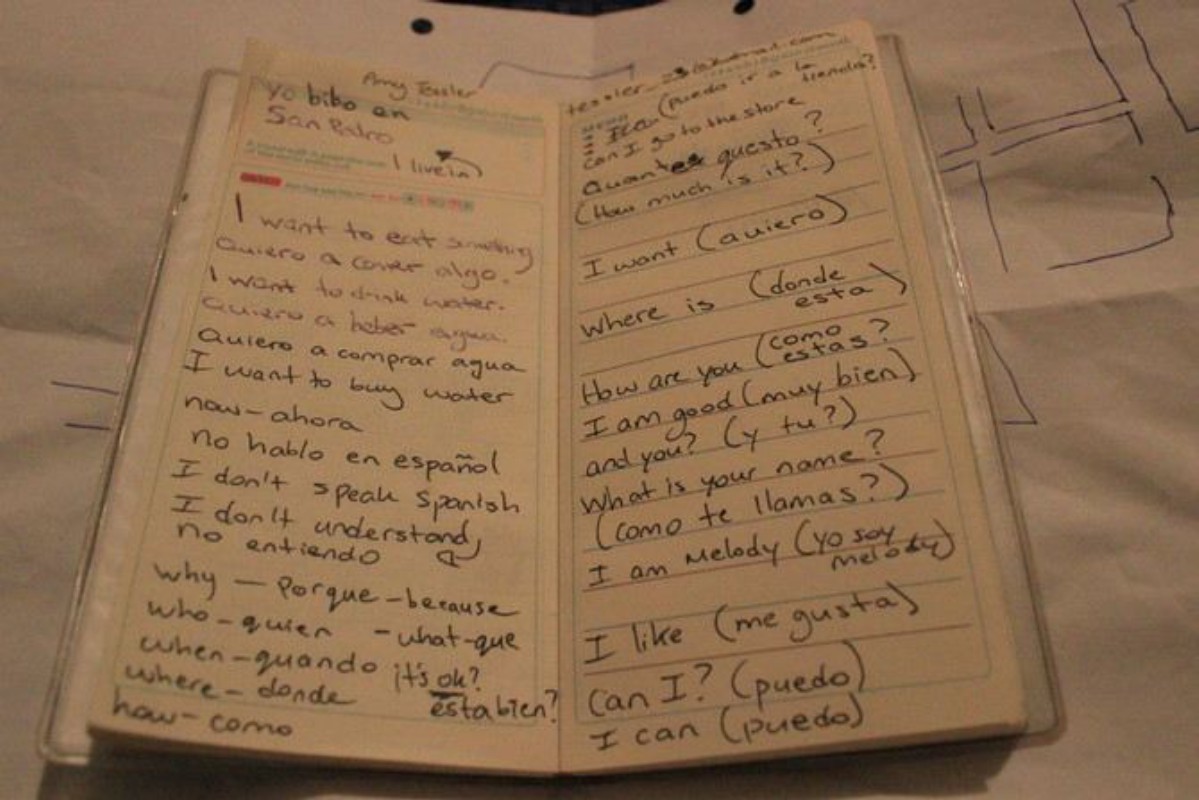 Amy Tessler
yo bibo en
San Pedro
I live in
I want to eat something
Quiero a comer algo.
I want to drink water.
Quiero a beber agua.
Quiero a comprar agua
I want to buy water
now - ahora
no hablo en español
I don't speak Spanish
I don't understand
no entiendo
why — Porque - because
who - quien - what - que
when - quando it's ok?
where - donde esta bien?
how - como
(puedo ir a la
tienda?
can I go to the store
quantes questo?
(How much is it?)
I want (quiero)
where is (donde
esta)
How are you (como
estas?
I am good (muy bien)
and you? (y tu?)
What is your name?
(como te llamas?)
I am Melody (yo soy
melody)
I like (me gusta)
Can I? (puedo)
I can (puedo)